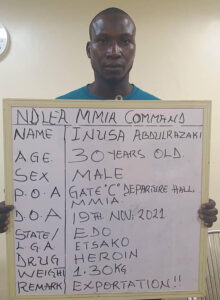 NDLEA MMIA COMMAND
NAME INUSA ABDULRAZAKI
AGE 30 YEARS OLD.
SEX MALE
P.O.A GATE "C" DEPARTURE HALL MMIA.
D.O.A 19TH NOV. 2021
STATE/ EDO
L.G.A ETSAKO
DRUG HEROIN
WEIGHT 1.30KG
REMARK EXPORTATION!!